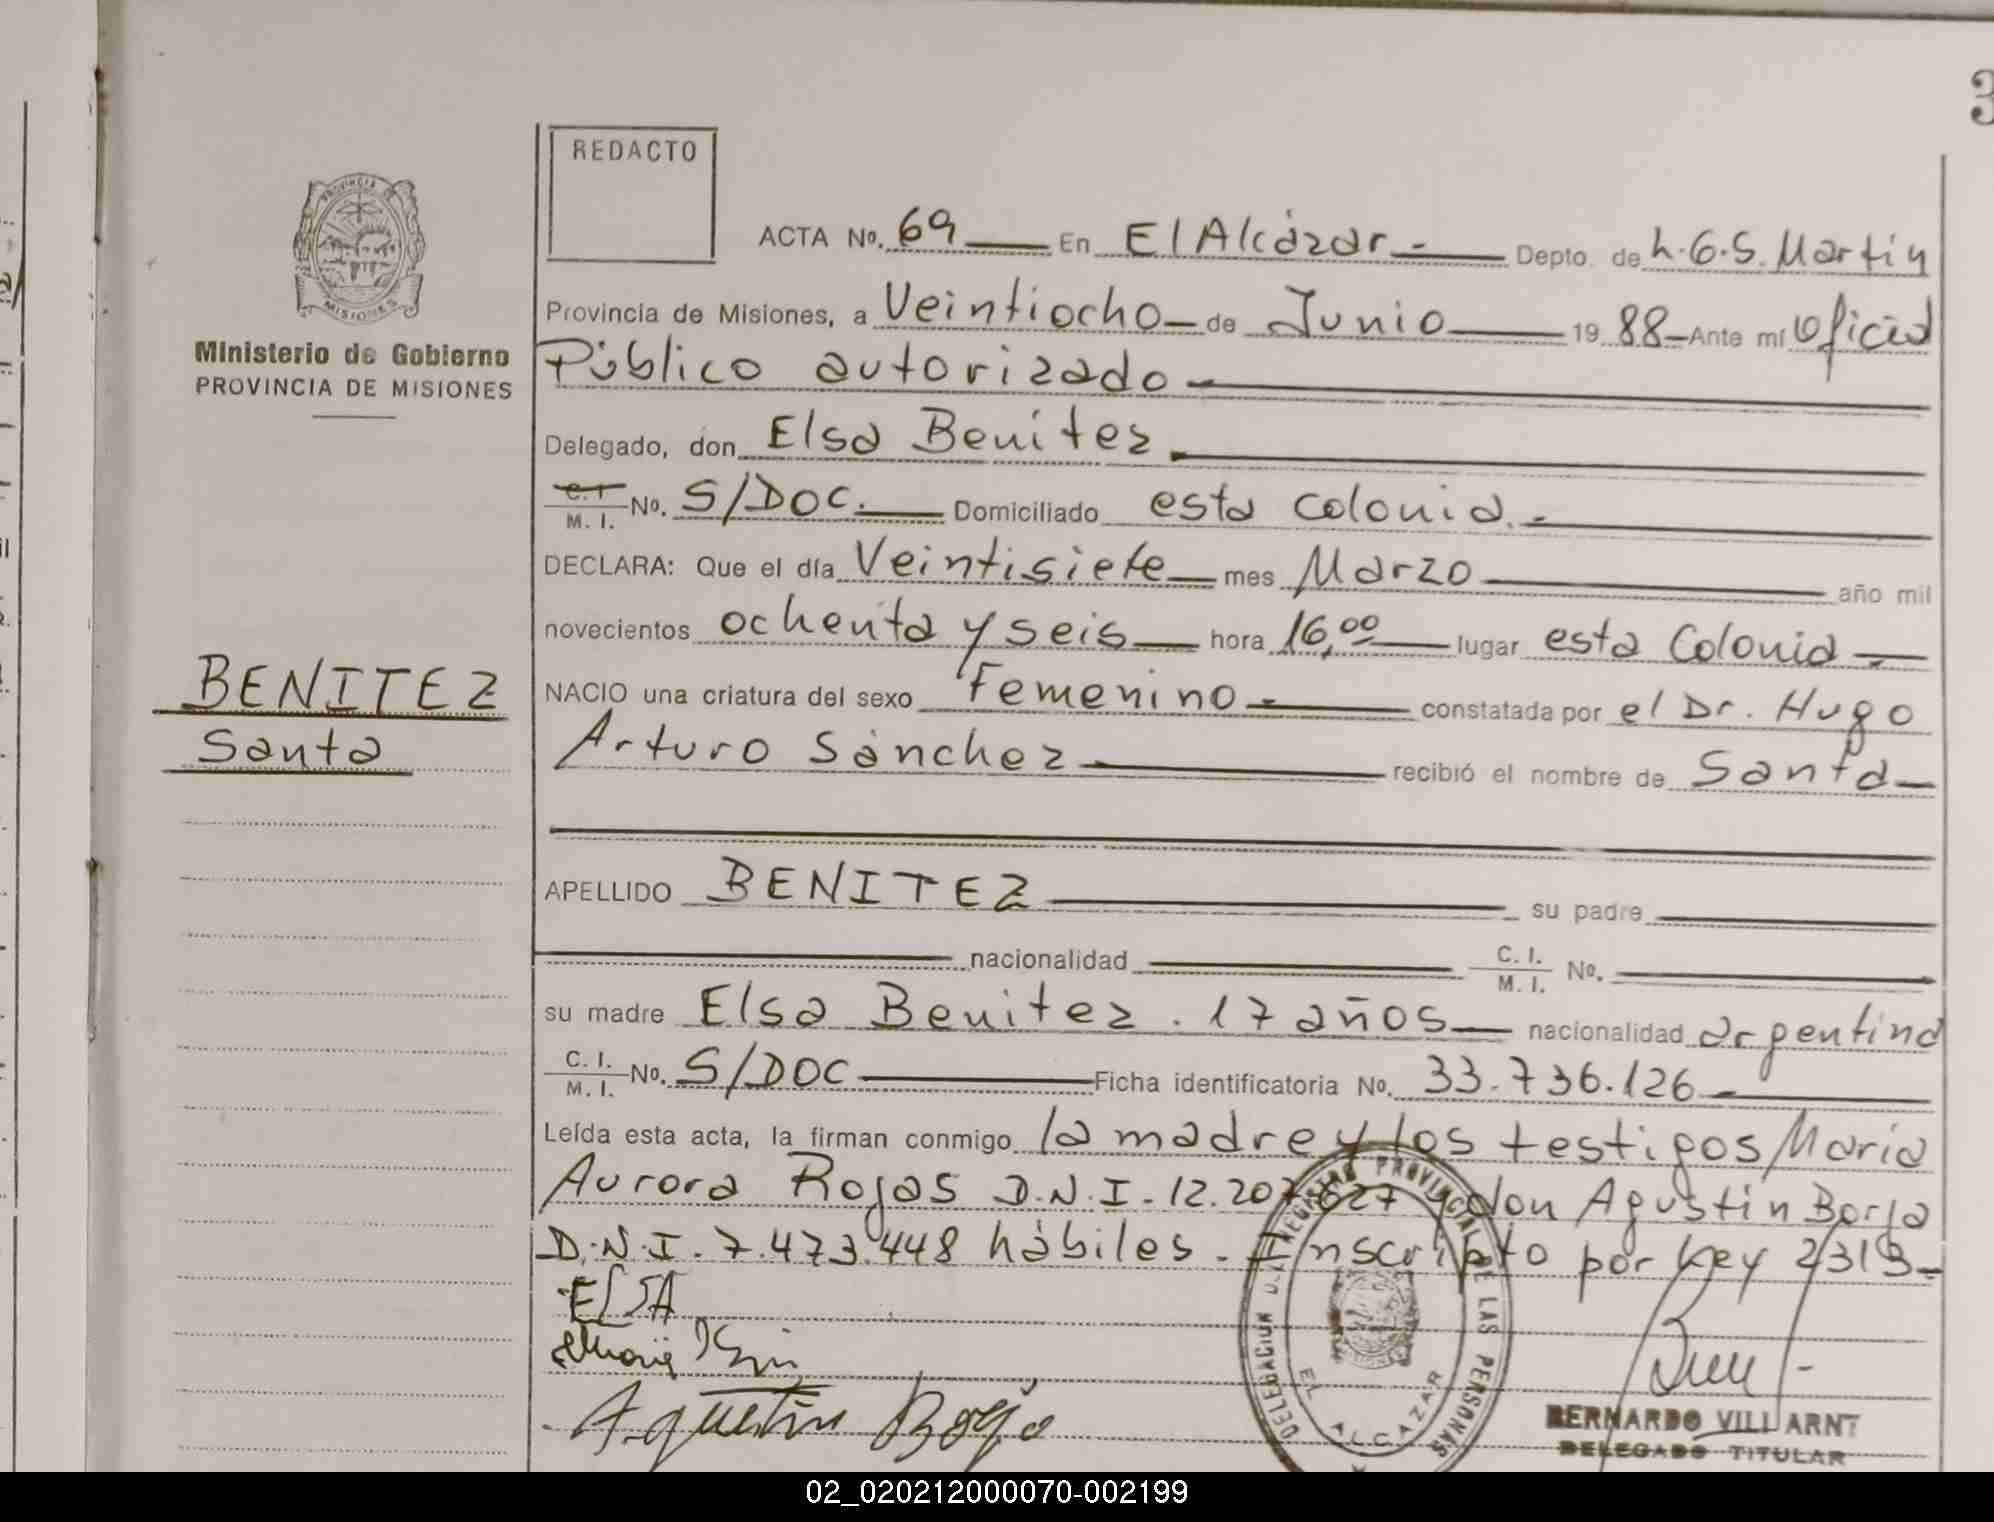 3
REDACTO
PROVINCIA DE
MISIONES
Ministerio de Gobierno
PROVINCIA DE MISIONES
BENITEZ
Santa
ACTA No. 69 En El Alcázar.- Depto. de L.G.S. Martín
Provincia de Misiones, a Veintiocho de Junio 19 88 Ante mí Oficial
Público autorizado
Delegado, don Elsa Benitez
C.I M. I. No. S/DOC. Domiciliado esta colonia.-
DECLARA: Que el día Veintisiete mes Marzo año mil
novecientos ochenta y seis hora 16,00 lugar esta Colonia
NACIO una criatura del sexo Femenino.- constatada por el Dr. Hugo
Arturo Sánchez recibió el nombre de Santa
APELLIDO BENITEZ su padre
nacionalidad C. I. M. I. No.
su madre Elsa Benitez. 17 años nacionalidad argentina
C. I. M. I. No. S/DOC Ficha identificatoria No. 33.736.126
Leída esta acta, la firman conmigo la madre y los testigos María
Aurora Rojas D.N.I. 12.207.627 y don Agustín Borja
D.N.I. 7.473.448 hábiles. Inscripto por Ley 2313
ELSA
Agustín Borja
DELEGACION DEL REGISTRO PROVINCIAL DE LAS PERSONAS
EL ALCAZAR
BERNARDO VILL ARNT
DELEGADO TITULAR
02_020212000070-002199